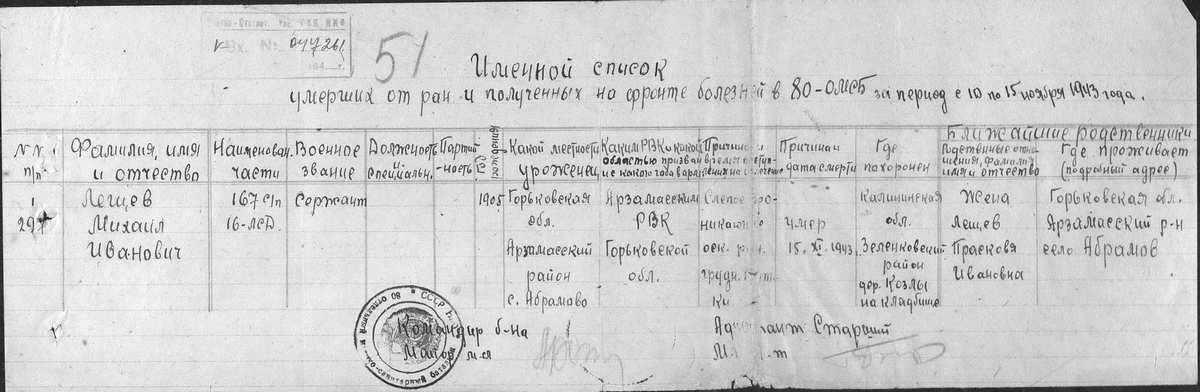 Вх. № 047261
51
Именной список
умерших от ран и полученных на фронте болезней в 80-омсб за период с 10 по 15 ноября 1943 года.
№ № п/п
Фамилия, имя и отчество
Наименован. части
Военное звание
Должность специальн.
Партийность
Год рождения
Какой местности уроженец
Каким РВК и какой областью призван и с какого года в арм.
Причина и даты смерти
Где похоронен
Ближайшие родственники
Родственные отношения, фамилия имя и отчество
Где проживает (подробный адрес)
1
297
Лещев
Михаил
Иванович
167 с/п
16-ЛСД.
Сержант
1905
Горьковская
обл.
Арзамасский
район
с. Абрамово
Арзамасским
РВК
Горьковской
обл.
Слепое
оск.
умер
15. XI. 1943.
Калининская
обл.
район
дер. Козлы
на кладбище
Жена
Лещев
Прасковя
Ивановна
Горьковская обл.
Арзамасский р-н
село Абрамов
Командир б-на
Майор м.с.
Адъютант Старший